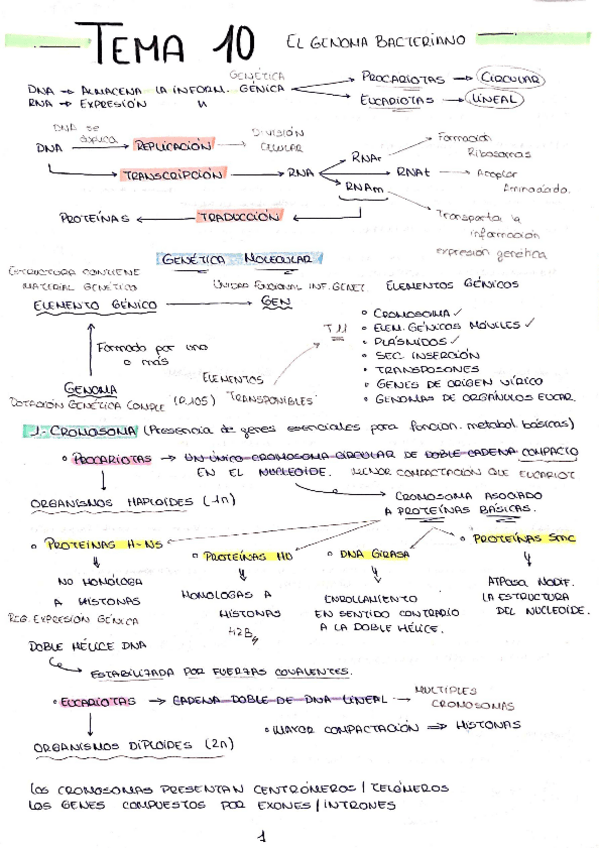 TEMA 10 EL GENOMA BACTERIANO
GENÉTICA
DNA → ALMACENA LA INFORM. GÉNICA PROCARIOTAS → CIRCULAR
RNA → EXPRESIÓN " EUCARIOTAS → LINEAL
DNA se duplica
DNA → REPLICACIÓN → DIVISIÓN CELULAR
TRANSCRIPCIÓN → RNA
RNAr → Formación Ribosomas
RNAt → Aceptor Aminoácido.
RNAm → Transportar la información expresión genética
PROTEÍNAS ← TRADUCCIÓN
GENÉTICA MOLECULAR
ESTRUCTURA CONTIENE MATERIAL GENÉTICO
UNIDAD FUNCIONAL INF. GENET.
ELEMENTOS GÉNICOS
ELEMENTO GÉNICO → GEN
• CROMOSOMA ✓
• ELEM. GÉNICOS MÓVILES ✓
• PLÁSMIDOS ✓
• SEC. INSERCIÓN
• TRANSPOSONES
• GENES DE ORIGEN VÍRICO
• GENOMAS DE ORGÁNULOS EUCAR.
T.11
Formado por uno o más
ELEMENTOS TRANSPONIBLES
GENOMA
DOTACIÓN GENÉTICA COMPLE (P.105)
1. CROMOSOMA (Presencia de genes esenciales para funcion. metabol. básicas)
• PROCARIOTAS → UN ÚNICO CROMOSOMA CIRCULAR DE DOBLE CADENA COMPACTO
EN EL NUCLEOIDE. MENOR COMPACTACIÓN QUE EUCARIOT
ORGANISMOS HAPLOIDES (1n)
CROMOSOMA ASOCIADO
A PROTEÍNAS BÁSICAS.
• PROTEÍNAS H-NS
NO HOMÓLOGA
A HISTONAS
REG. EXPRESIÓN GÉNICA
• PROTEÍNAS HU
HOMOLOGAS A
HISTONAS
H2B
• DNA GIRASA
ENROLLAMIENTO
EN SENTIDO CONTRARIO
A LA DOBLE HÉLICE.
• PROTEÍNAS SMC
ATPasa MODIF.
LA ESTRUCTURA
DEL NUCLEOIDE.
DOBLE HÉLICE DNA
ESTABILIZADA POR FUERZAS COVALENTES.
• EUCARIOTAS → CADENA DOBLE DE DNA LINEAL → MULTIPLES CROMOSOMAS
• MAYOR COMPACTACIÓN ⇒ HISTONAS
ORGANISMOS DIPLOIDES (2n)
LOS CROMOSOMAS PRESENTAN CENTRÓMEROS / TELÓMEROS
LOS GENES COMPUESTOS POR EXONES / INTRONES
1